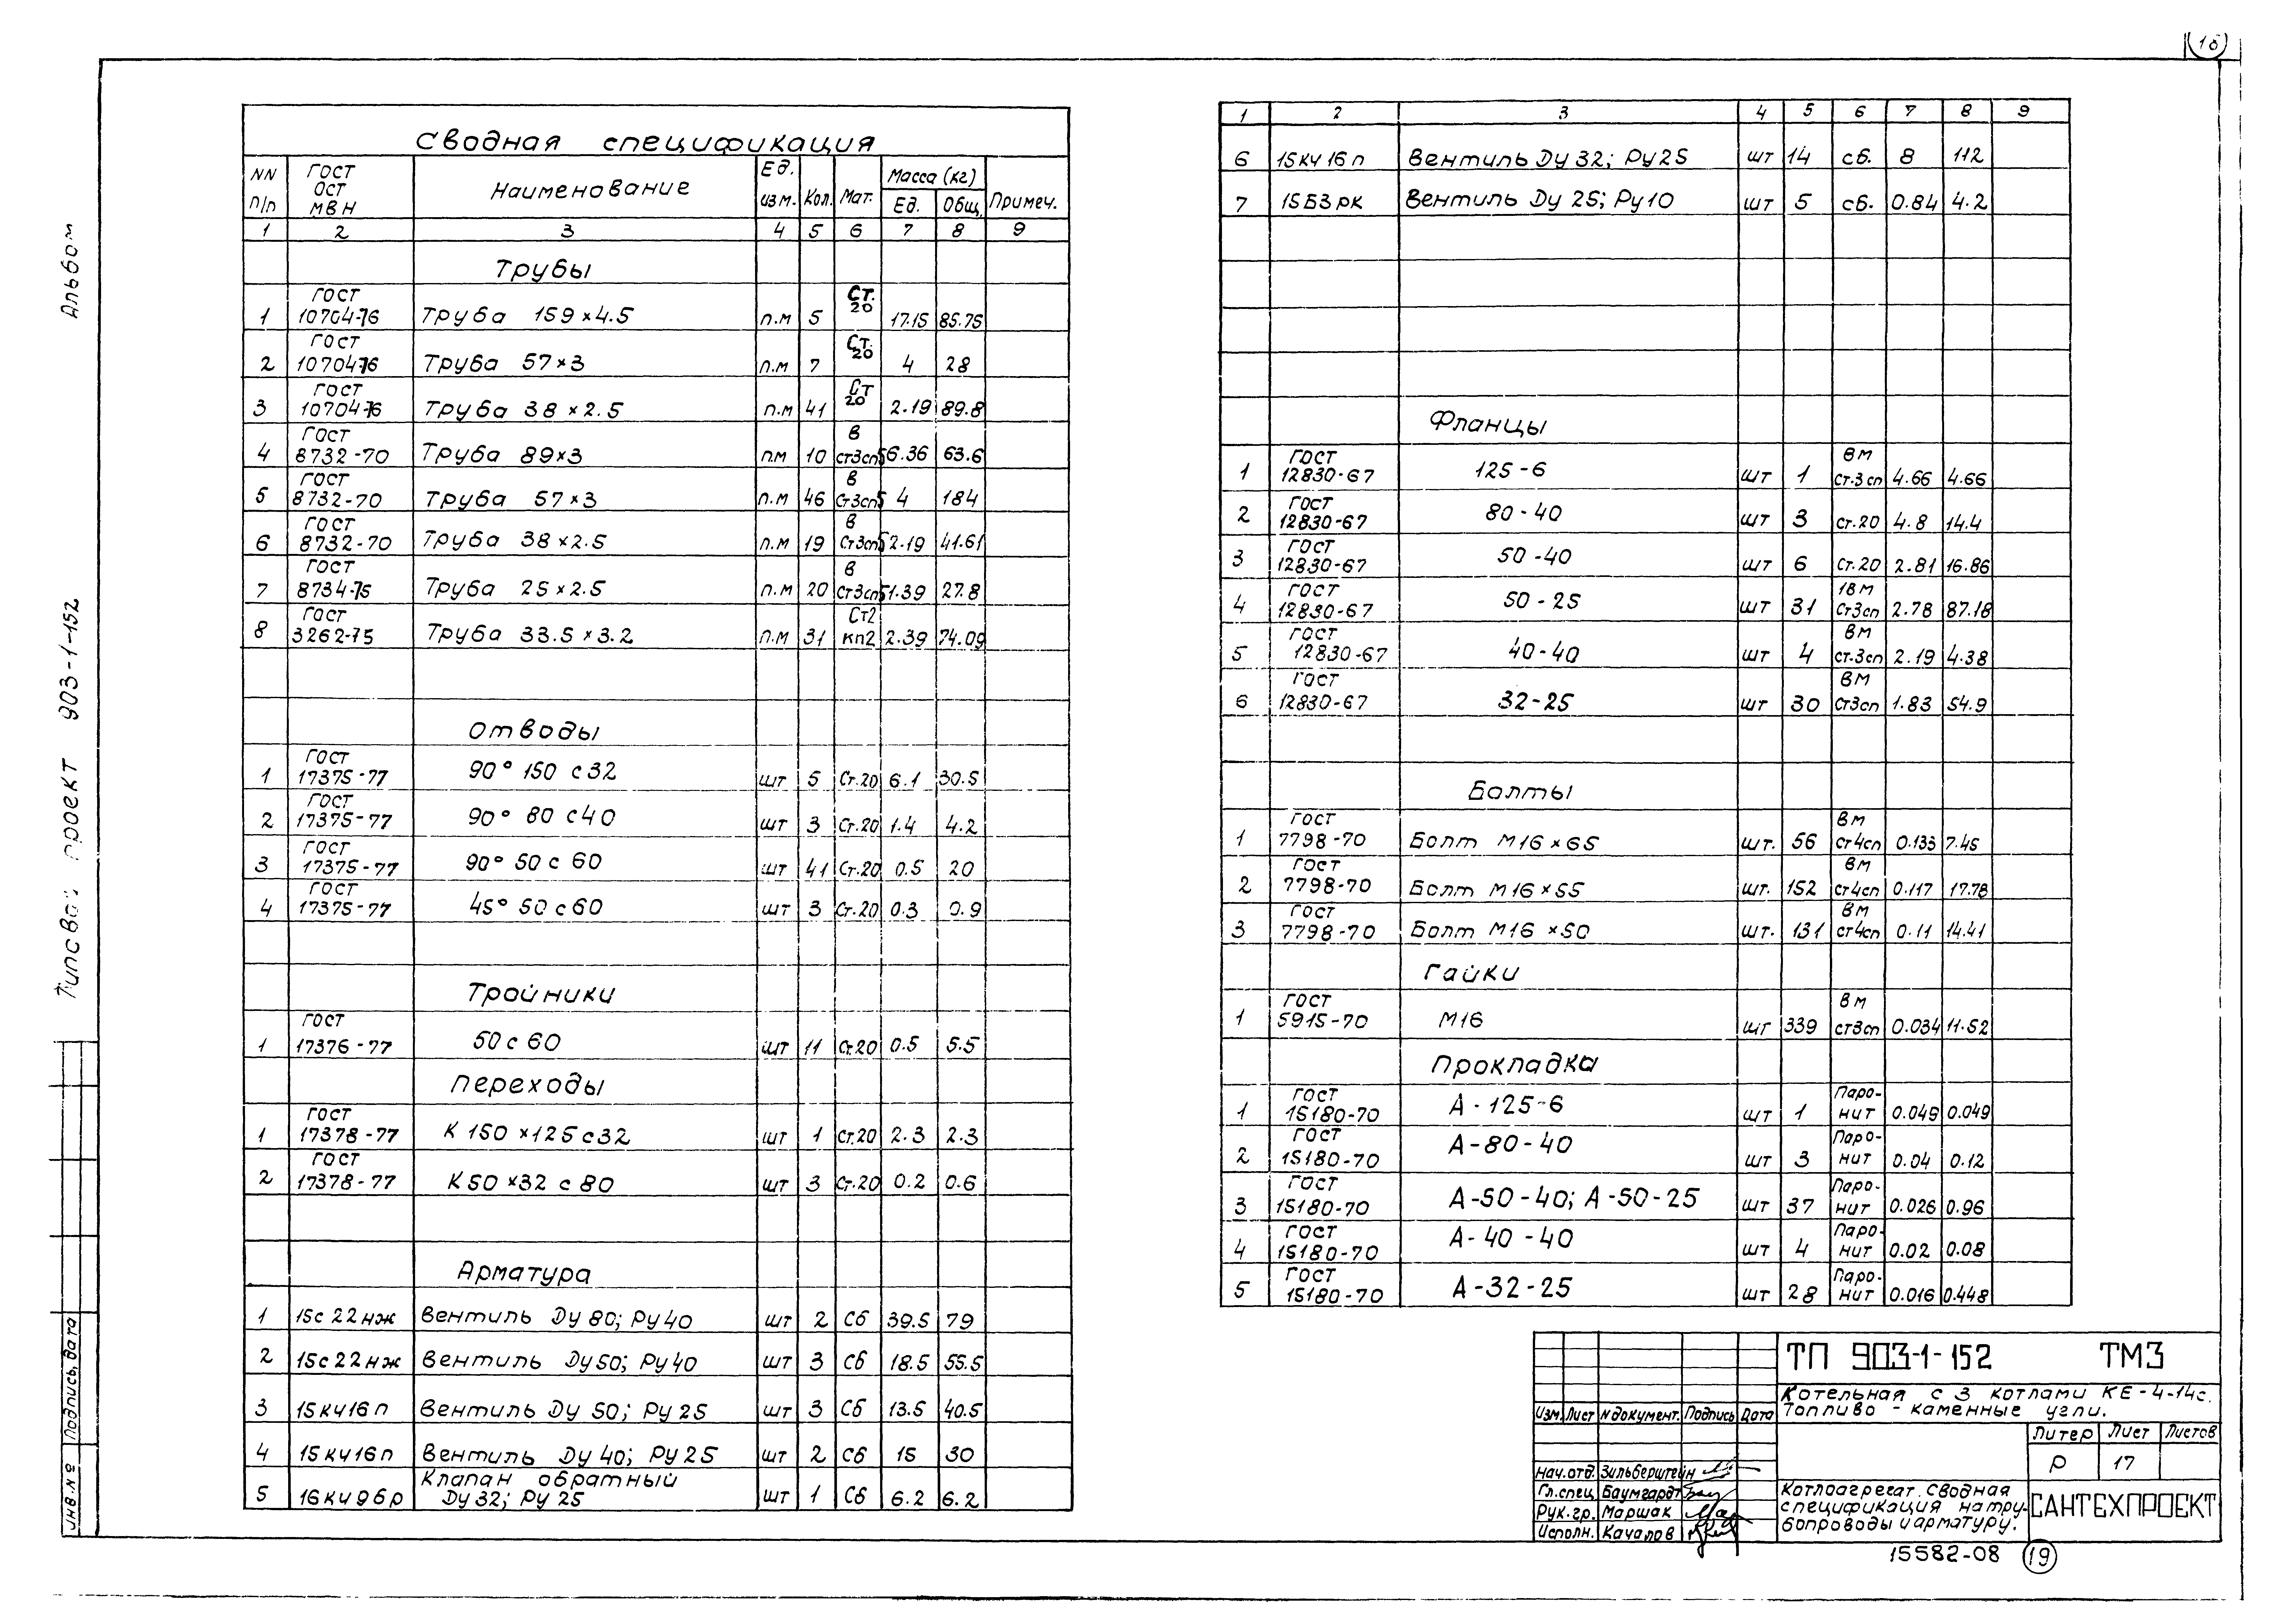 18
Альбом
Типовой проект 903-1-152
Сводная спецификация
NN п/п | ГОСТ ОСТ МВН | Наименование | Ед. изм. | Кол. | Мат. | Масса (кг) Ед. | Общ. | Примеч.
1 2 3 4 5 6 7 8 9
Трубы
1 ГОСТ 10704-76 Труба 159×4.5 п.м 5 Ст. 20 17.15 85.75
2 ГОСТ 10704-76 Труба 57×3 п.м 7 Ст. 20 4 28
3 ГОСТ 10704-76 Труба 38×2.5 п.м 41 Ст 20 2.19 89.8
4 ГОСТ 8732-70 Труба 89×3 п.м 10 В ст3сп5 6.36 63.6
5 ГОСТ 8732-70 Труба 57×3 п.м 46 В Ст3сп5 4 184
6 ГОСТ 8732-70 Труба 38×2.5 п.м 19 В Ст3сп5 2.19 41.61
7 ГОСТ 8734-75 Труба 25×2.5 п.м 20 В Ст3сп5 1.39 27.8
8 ГОСТ 3262-75 Труба 33.5×3.2 п.м 31 Ст2 кп2 2.39 74.09
Отводы
1 ГОСТ 17375-77 90° 150 с32 шт 5 Ст.20 6.1 30.5
2 ГОСТ 17375-77 90° 80 с40 шт 3 Ст.20 1.4 4.2
3 ГОСТ 17375-77 90° 50 с 60 шт 41 Ст.20 0.5 20
4 ГОСТ 17375-77 45° 50 с 60 шт 3 Ст.20 0.3 0.9
Тройники
1 ГОСТ 17376-77 50 с 60 шт 11 Ст.20 0.5 5.5
Переходы
1 ГОСТ 17378-77 К 150×125 с32 шт 1 Ст.20 2.3 2.3
2 ГОСТ 17378-77 К 50×32 с 80 шт 3 Ст.20 0.2 0.6
Арматура
1 15с 22нж Вентиль Ду 80; Ру 40 шт 2 Сб 39.5 79
2 15с 22нж Вентиль Ду50; Ру 40 шт 3 Сб 18.5 55.5
3 15кч16п Вентиль Ду 50; Ру 25 шт 3 Сб 13.5 40.5
4 15кч16п Вентиль Ду 40; Ру 25 шт 2 Сб 15 30
5 16кч9бр Клапан обратный Ду 32; Ру 25 шт 1 Сб 6.2 6.2
1 2 3 4 5 6 7 8 9
6 15кч 16п Вентиль Ду 32; Ру25 шт 14 сб. 8 112
7 15Б3рк Вентиль Ду 25; Ру10 шт 5 сб. 0.84 4.2
Фланцы
1 ГОСТ 12830-67 125-6 шт 1 Вм Ст.3сп 4.66 4.66
2 ГОСТ 12830-67 80-40 шт 3 Ст.20 4.8 14.4
3 ГОСТ 12830-67 50-40 шт 6 Ст.20 2.81 16.86
4 ГОСТ 12830-67 50-25 шт 31 1вм Ст3сп 2.78 87.18
5 ГОСТ 12830-67 40-40 шт 4 Вм Ст.3сп 2.19 4.38
6 ГОСТ 12830-67 32-25 шт 30 Вм Ст3сп 1.83 54.9
Болты
1 ГОСТ 7798-70 Болт М16×65 шт. 56 Вм ст4сп 0.133 7.45
2 ГОСТ 7798-70 Болт М16×55 шт. 152 Вм ст4сп 0.117 17.78
3 ГОСТ 7798-70 Болт М16×50 шт. 131 Вм ст4сп 0.11 14.41
Гайки
1 ГОСТ 5915-70 М16 шт 339 Вм ст3сп 0.034 11.52
Прокладка
1 ГОСТ 15180-70 А-125-6 шт 1 Паронит 0.049 0.049
2 ГОСТ 15180-70 А-80-40 шт 3 Паронит 0.04 0.12
3 ГОСТ 15180-70 А-50-40; А-50-25 шт 37 Паронит 0.026 0.96
4 ГОСТ 15180-70 А-40-40 шт 4 Паронит 0.02 0.08
5 ГОСТ 15180-70 А-32-25 шт 28 Паронит 0.016 0.448
ТП 903-1-152 ТМ3
Котельная с 3 котлами КЕ-4-14с.
Топливо - каменные угли.
Изм. Лист N документ. Подпись Дата
Литер Лист Листов
Р 17
Нач.отд. Зильберштейн
Гл.спец. Баумгардт
Рук.гр. Маршак
Исполн. Качалов
Котлоагрегат. Сводная
спецификация на тру-
бопроводы и арматуру.
САНТЕХПРОЕКТ
15582-08 19
Подпись, дата
Инв. №